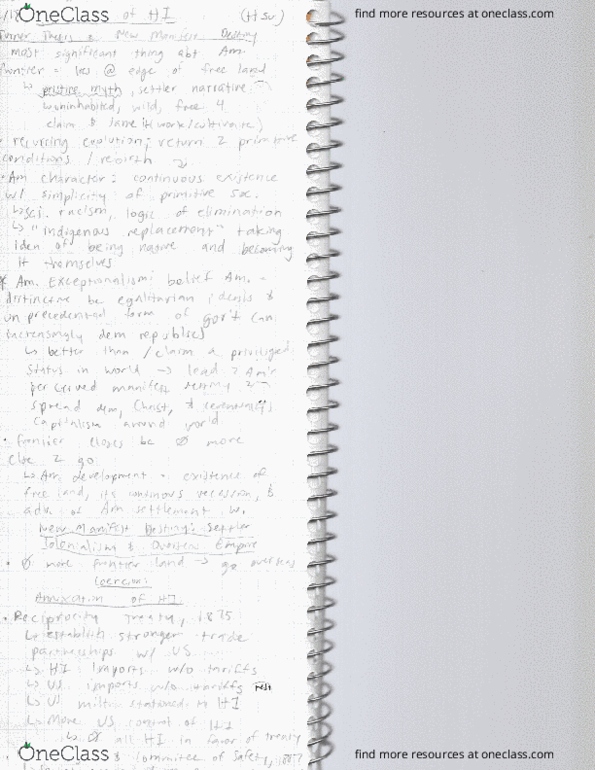 OneClass
find more resources at oneclass.com
of HI (HSU)
Turner Thesis & New Manifest Destiny
most significant thing abt Am.
frontier = lies @ edge of free land
↳ pristine myth, settler narrative
uninhabited, wild, free 4
claim &
• recurring evolution; return 2 primitive
conditions / rebirth
• Am character: continuous existence
w/ simplicity of primitive soc.
↳ sci. racism, logic of elimination
↳ "indigenous replacement" taking
iden of being native and becoming
it themselves
* Am. Exceptionalism: belief Am. =
distinctive bc egalitarian ideals &
unprecedented form of gov't (an
increasingly dem republic)
↳ better than / claim a privileged
status in world → lead 2 Am's
perceived manifest destiny 2
spread dem, Christ, &
capitalism around world
• frontier closes bc Ø more
else 2 go
↳ Am development = existence of
free land, its continous recession, &
adv. of Am settlement w.
New Manifest Destiny: Settler
Colonialism & Overseas Empire
• Ø more frontier land → go overseas
Annexation of HI
• Reciprocity Treaty, 1875
↳ establish stronger trade
partnerships w/ US
↳ HI imports w/o tariffs
↳ US imports w/o tariffs
↳ US milit. stationed in HI
↳ More US control of HI
↳ Ø all HI in favor of treaty
& Committee of Safety, 1887
OneClass
find more resources at oneclass.com